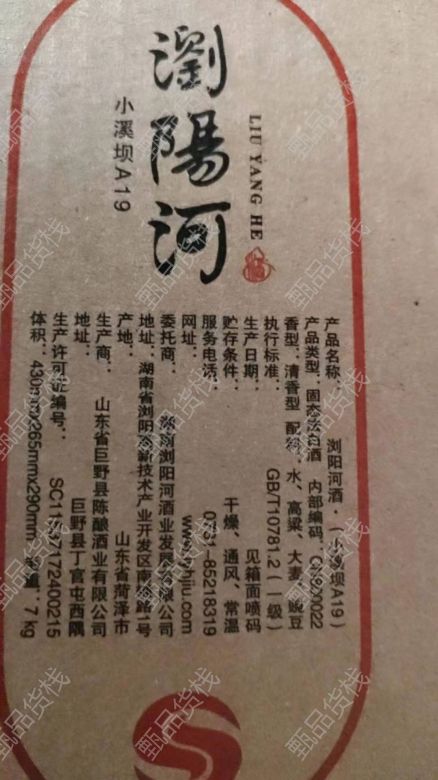 瀏陽河
LIU YANG HE
小溪坝A19
产品名称： 浏阳河酒·（小溪坝A19）
产品类型：固态法白酒 内部编码：
香型：清香型 配料：水、高粱、大麦、豌豆
执行标准： GB/T10781.2（一级）
生产日期： 见箱面喷码
贮存条件： 干燥、通风、常温
服务电话： 0731-85218319
网址：
委托商： 湖南浏阳河酒业发展有限公司
地址：湖南省浏阳高新技术产业开发区南路1号
产地： 山东省菏泽市
生产商： 山东省巨野县陈酿酒业有限公司
地址： 巨野县丁官屯西隅
生产许可证编号：
体积： 430mmx265mmx290mm 重量：7kg
甄品货栈